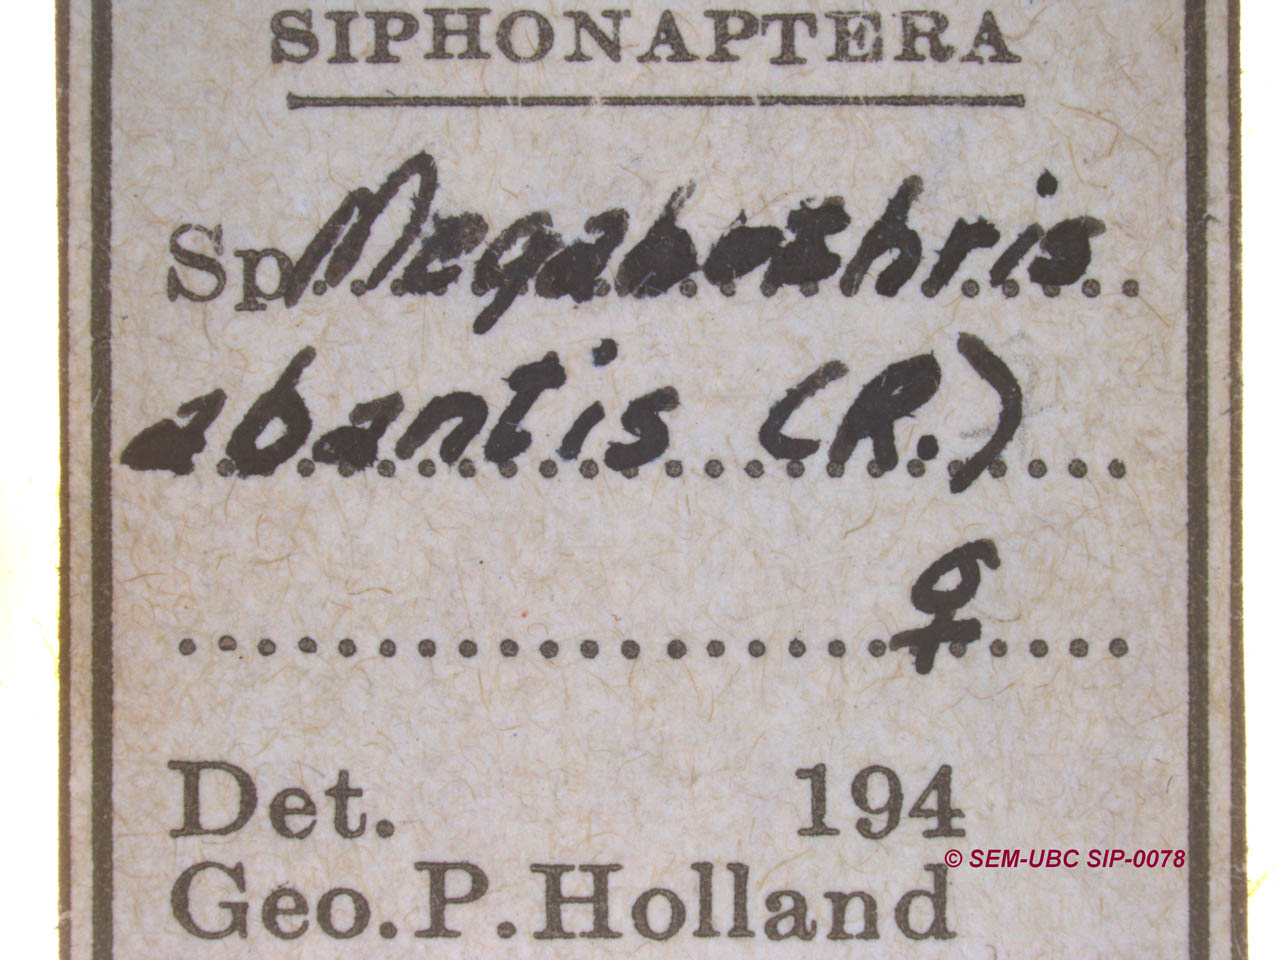 SIPHONAPTERA
Sp. Megabothris
abantis (R.)
♀
Det. 194
© SEM-UBC SIP-0078
Geo. P. Holland